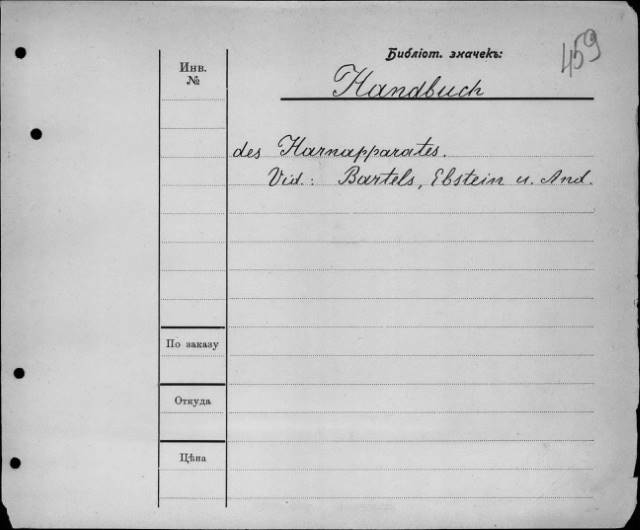 Библіот. значекъ:
459
Инв.
№
Handbuch
des Harnapparates.
Vid.: Bartels, Ebstein u. And.
По заказу
Откуда
Цѣна